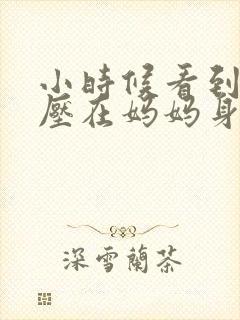 小時候看到
壓在媽媽身
深雪蘭茶